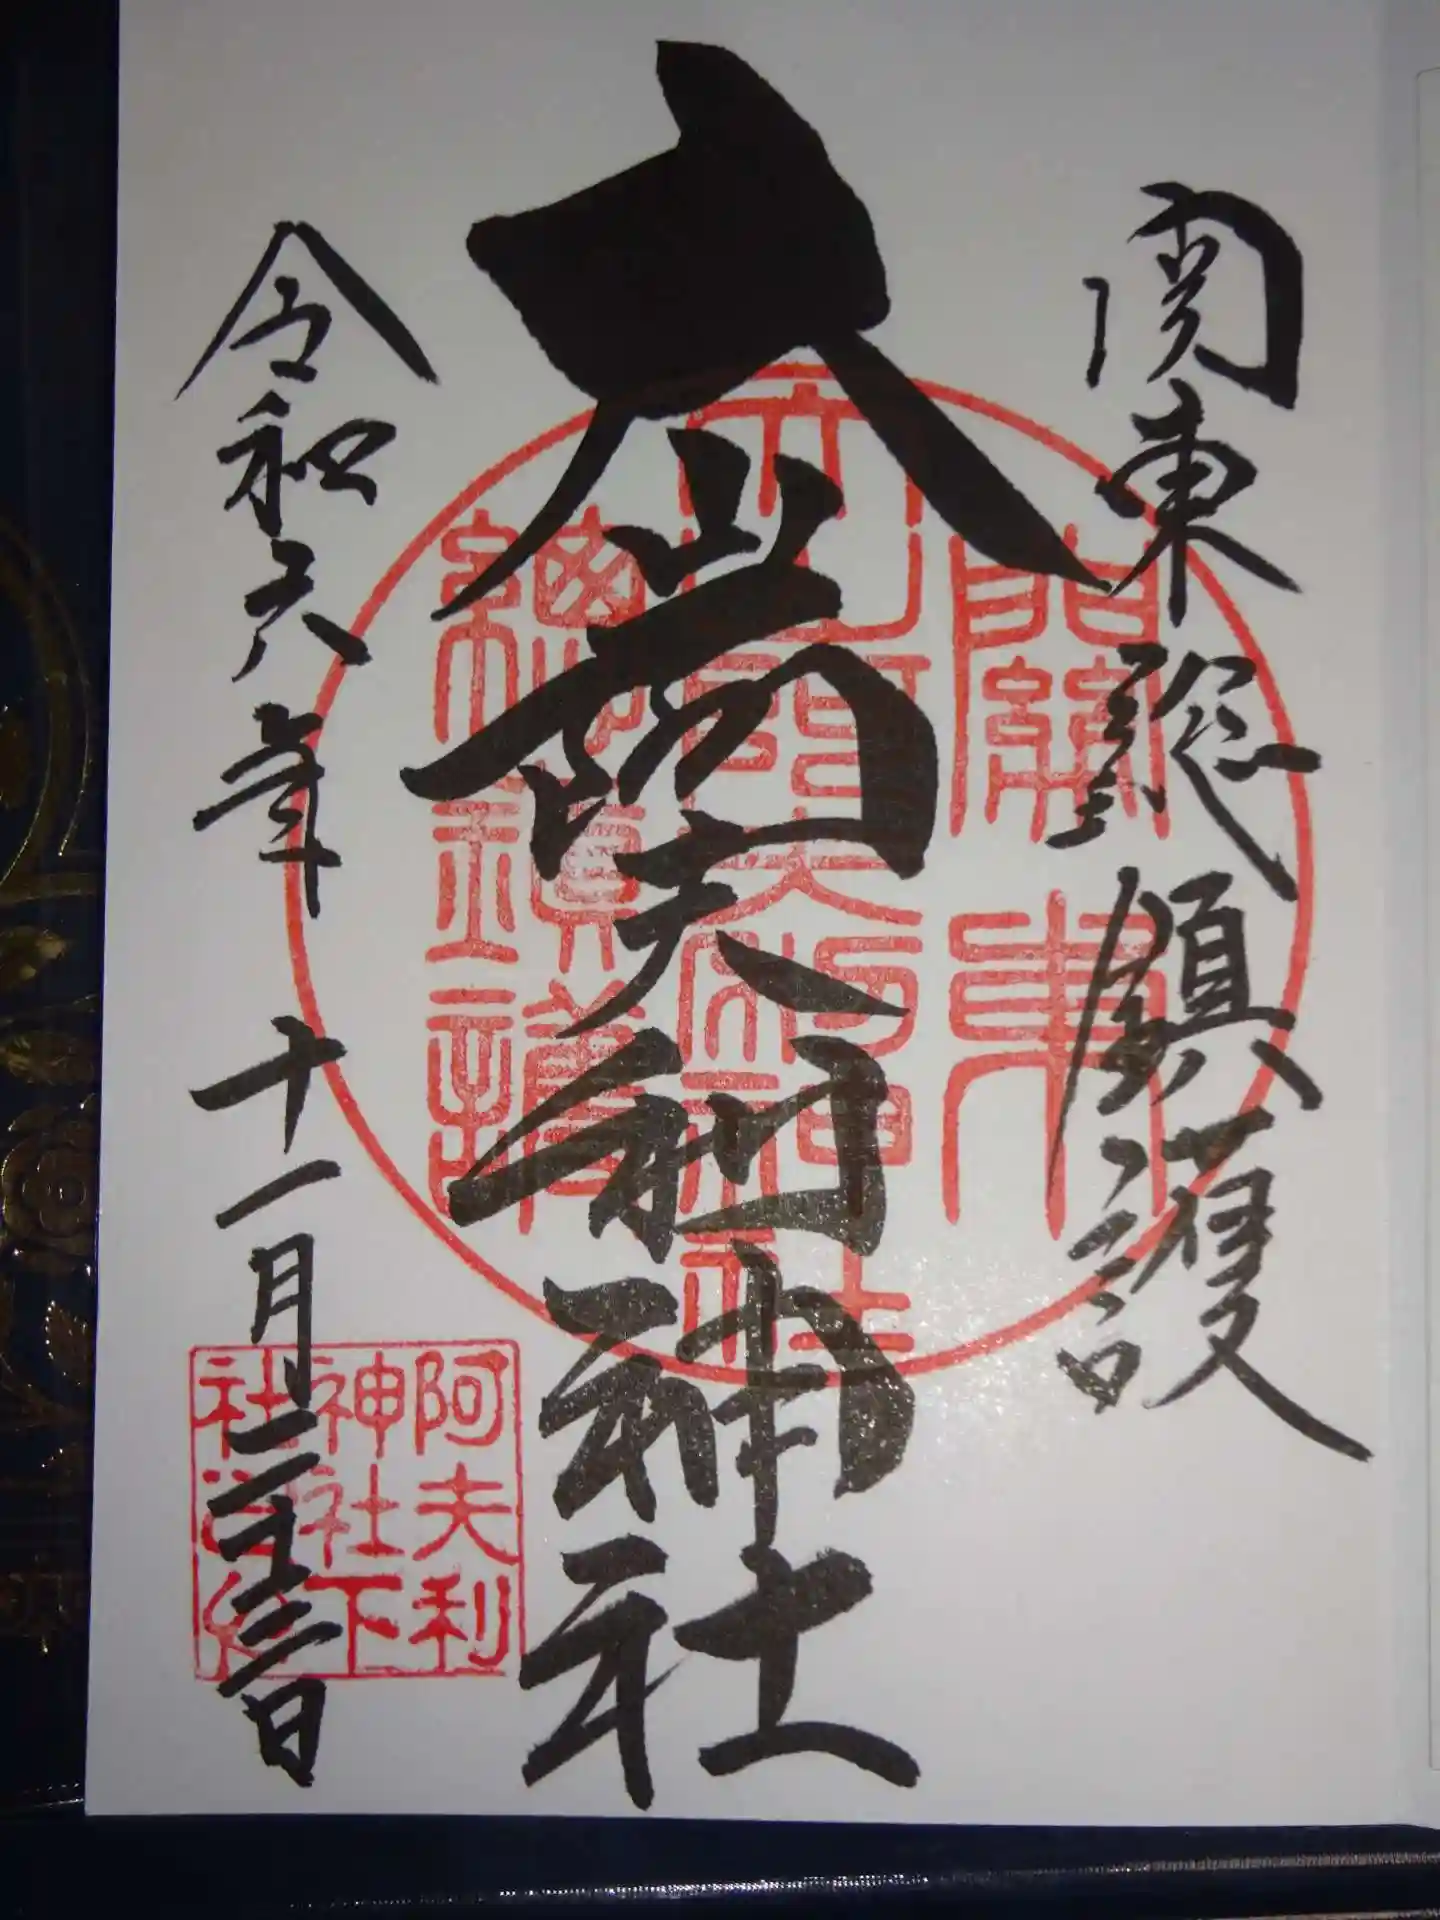 関東総鎮護
大山阿夫利神社
令和六年十一月二十三日
關東
大山阿夫利神社
總鎮護
阿夫利
神社下
社之印